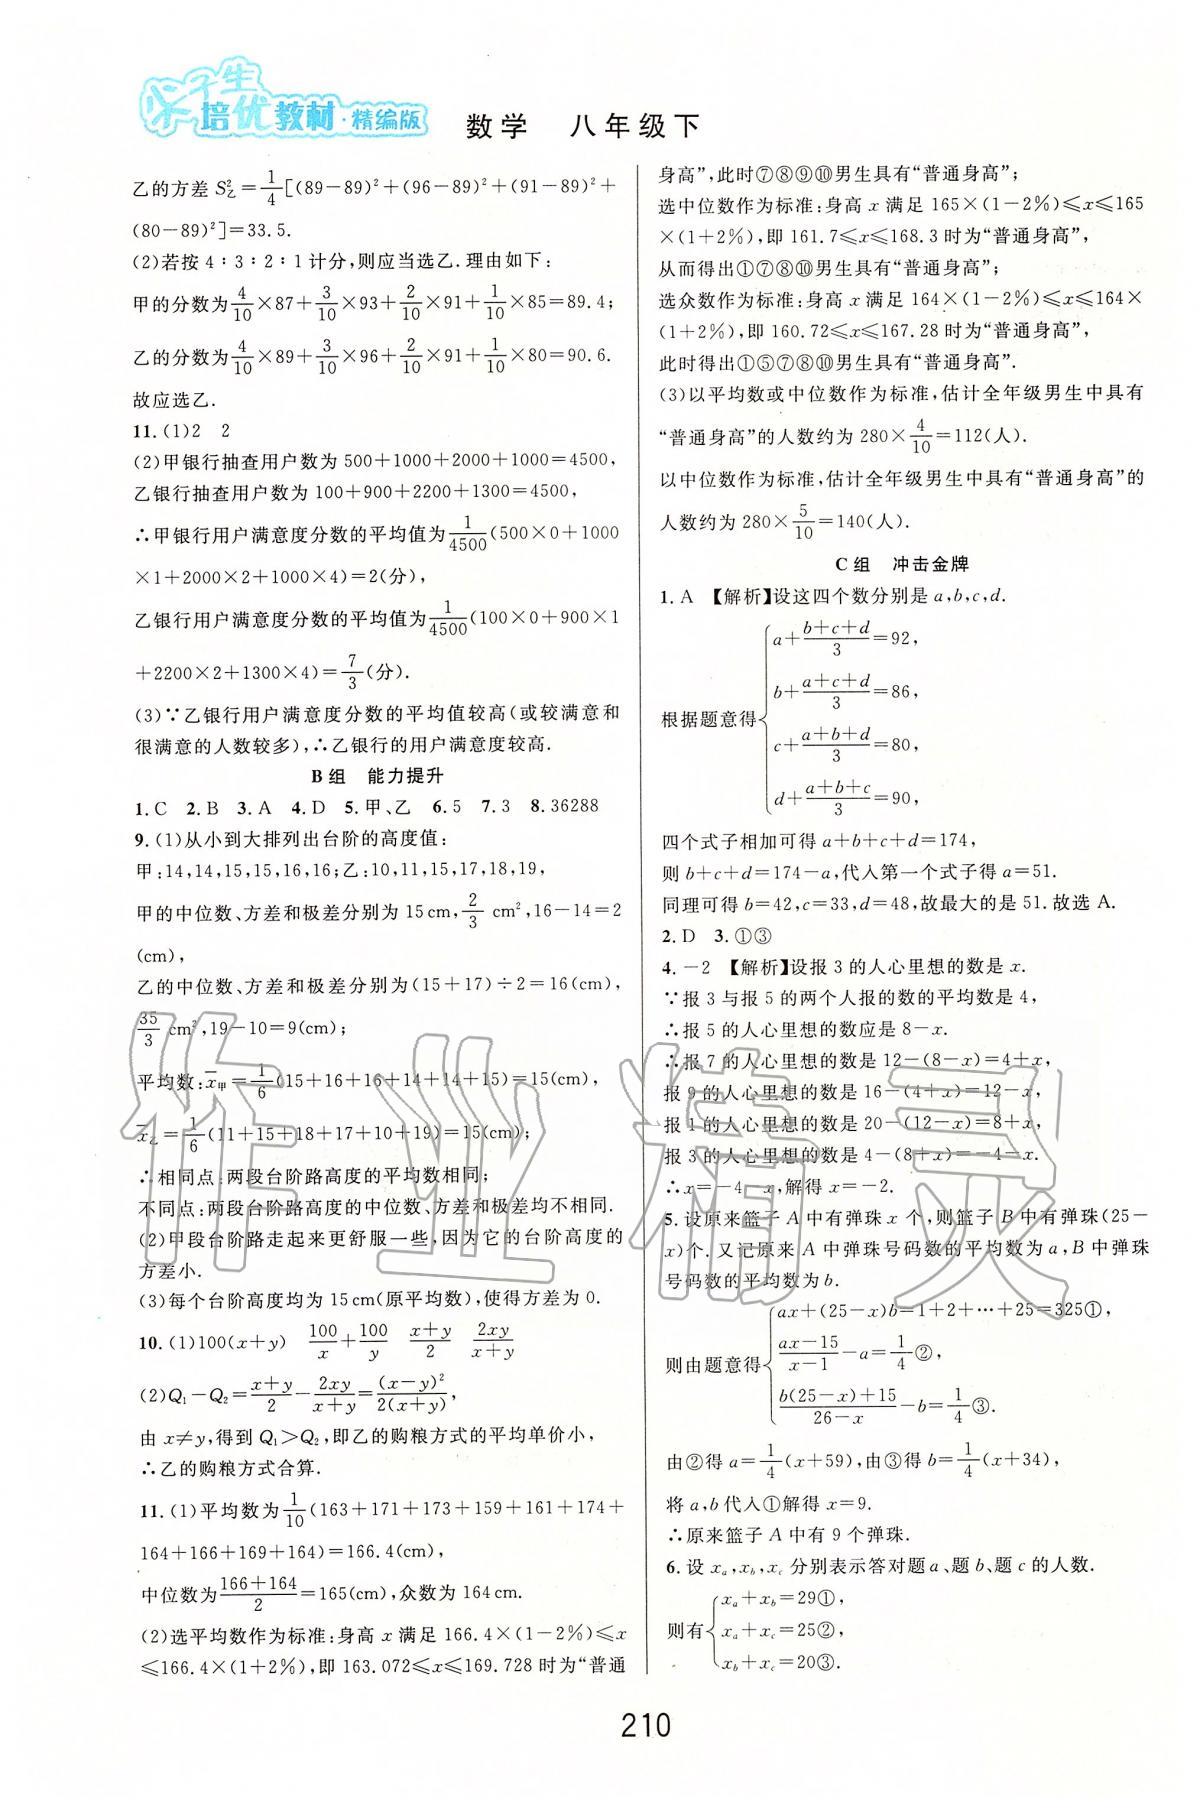 尖子生
培优教材·精编版
数学 八年级下
乙的方差 S²乙=1/4[(89－89)²＋(96－89)²＋(91－89)²＋
(80－89)²]=33.5.
(2)若按 4∶3∶2∶1 计分,则应当选乙.理由如下:
甲的分数为4/10×87＋3/10×93＋2/10×91＋1/10×85=89.4;
乙的分数为4/10×89＋3/10×96＋2/10×91＋1/10×80=90.6.
故应选乙.
11.(1)2 2
(2)甲银行抽查用户数为 500＋1000＋2000＋1000=4500,
乙银行抽查用户数为 100＋900＋2200＋1300=4500,
∴甲银行用户满意度分数的平均值为1/4500(500×0＋1000
×1＋2000×2＋1000×4)=2(分),
乙银行用户满意度分数的平均值为1/4500(100×0＋900×1
＋2200×2＋1300×4)=7/3(分).
(3)∵乙银行用户满意度分数的平均值较高(或较满意和
很满意的人数较多),∴乙银行的用户满意度较高.
B组 能力提升
1.C 2.B 3.A 4.D 5.甲、乙 6.5 7.3 8.36288
9.(1)从小到大排列出台阶的高度值:
甲:14,14,15,15,16,16;乙:10,11,15,17,18,19,
甲的中位数、方差和极差分别为 15 cm,2/3 cm²,16－14=2
(cm),
乙的中位数、方差和极差分别为(15＋17)÷2=16(cm),
35/3 cm²,19－10=9(cm);
平均数:x̄甲=1/6(15＋16＋16＋14＋14＋15)=15(cm),
x̄乙=1/6(11＋15＋18＋17＋10＋19)=15(cm);
∴相同点:两段台阶路高度的平均数相同;
不同点:两段台阶路高度的中位数、方差和极差均不相同.
(2)甲段台阶路走起来更舒服一些,因为它的台阶高度的
方差小.
(3)每个台阶高度均为 15 cm(原平均数),使得方差为 0.
10.(1)100(x＋y) 100/x＋100/y (x＋y)/2 2xy/(x＋y)
(2)Q₁－Q₂=(x＋y)/2－2xy/(x＋y)=(x－y)²/2(x＋y),
由 x≠y,得到 Q₁>Q₂,即乙的购粮方式的平均单价小,
∴乙的购粮方式合算.
11.(1)平均数为1/10(163＋171＋173＋159＋161＋174＋
164＋166＋169＋164)=166.4(cm),
中位数为(166＋164)/2=165(cm),众数为 164 cm.
(2)选平均数作为标准:身高 x 满足 166.4×(1－2%)≤x
≤166.4×(1＋2%),即 163.072≤x≤169.728 时为“普通
身高”,此时⑦⑧⑨⑩男生具有“普通身高”;
选中位数作为标准:身高 x 满足 165×(1－2%)≤x≤165
×(1＋2%),即 161.7≤x≤168.3 时为“普通身高”,
从而得出①⑦⑧⑩男生具有“普通身高”;
选众数作为标准:身高 x 满足 164×(1－2%)≤x≤164×
(1＋2%),即 160.72≤x≤167.28 时为“普通身高”,
此时得出①⑤⑦⑧⑩男生具有“普通身高”.
(3)以平均数或中位数作为标准,估计全年级男生中具有
“普通身高”的人数约为 280×4/10=112(人).
以中位数作为标准,估计全年级男生中具有“普通身高”的
人数约为 280×5/10=140(人).
C组 冲击金牌
1.A 【解析】设这四个数分别是 a,b,c,d.
根据题意得
a＋(b＋c＋d)/3=92,
b＋(a＋c＋d)/3=86,
c＋(a＋b＋d)/3=80,
d＋(a＋b＋c)/3=90,
四个式子相加可得 a＋b＋c＋d=174,
则 b＋c＋d=174－a,代入第一个式子得 a=51.
同理可得 b=42,c=33,d=48,故最大的是 51.故选 A.
2.D 3.①③
4.－2 【解析】设报 3 的人心里想的数是 x.
∵报 3 与报 5 的两个人报的数的平均数是 4,
∴报 5 的人心里想的数应是 8－x.
∴报 7 的人心里想的数是 12－(8－x)=4＋x,
报 9 的人心里想的数是 16－(4＋x)=12－x,
报 1 的人心里想的数是 20－(12－x)=8＋x,
报 3 的人心里想的数是 4－(8＋x)=－4－x.
∴x=－4－x,解得 x=－2.
5.设原来篮子 A 中有弹珠 x 个,则篮子 B 中有弹珠(25－
x)个.又记原来 A 中弹珠号码数的平均数为 a,B 中弹珠
号码数的平均数为 b.
则由题意得
ax＋(25－x)b=1＋2＋…＋25=325①,
(ax－15)/(x－1)－a=1/4②,
(b(25－x)＋15)/(26－x)－b=1/4③.
由②得 a=1/4(x＋59),由③得 b=1/4(x＋34),
将 a,b 代入①解得 x=9.
∴原来篮子 A 中有 9 个弹珠.
6.设 xₐ,x_b,x_c 分别表示答对题 a、题 b、题 c 的人数.
则有
xₐ＋x_b=29①,
xₐ＋x_c=25②,
x_b＋x_c=20③.
210
作业精灵